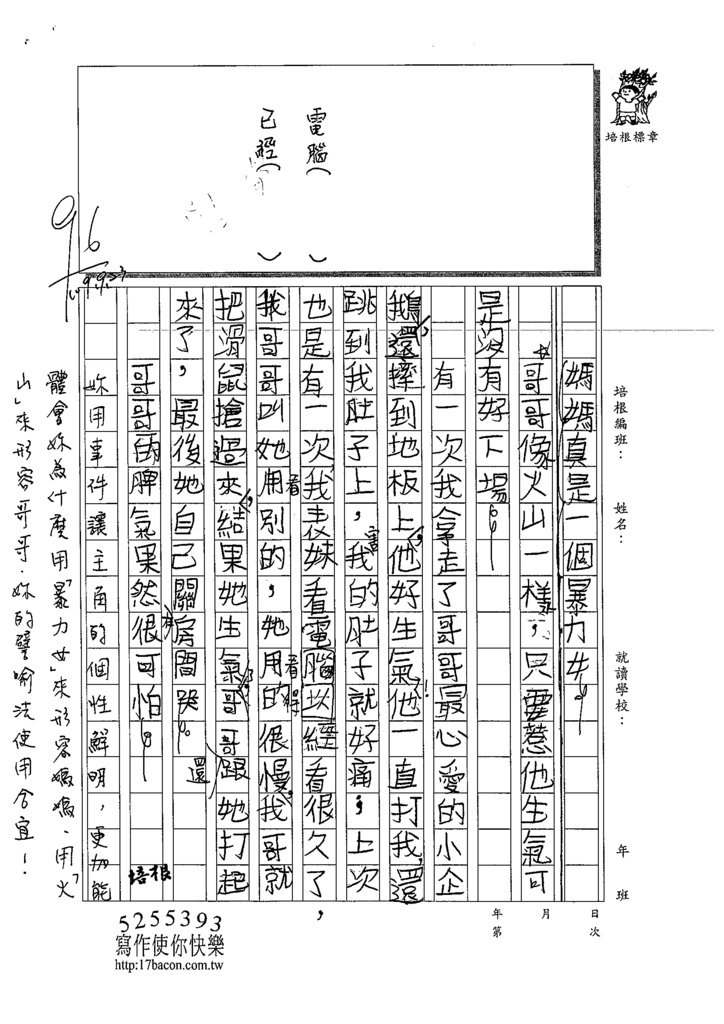 培根標章
電腦(　　)
已經(　　)
96
99.9.27
培根編班：　姓名：　就讀學校：　年　班
年　月　日
第　次
媽媽真是一個暴力女。
哥哥像火山一樣，只要惹他生氣可
是沒有好下場。
有一次我拿走了哥哥最心愛的小企
鵝，還摔到地板上，他好生氣！他一直打我，還
跳到我肚子上，害我的肚子就好痛，上次
也是有一次，我表妹看電腦坎經看很久了，
我哥哥叫她用看別的，她用看的很慢，我哥就
把滑鼠搶過來，結果她生氣，哥哥還跟她打起
來了，最後她自己關房間哭。
哥哥的脾氣果然很可怕。
妳用事件讓主角的個性鮮明，更加能
體會妳為什麼用「暴力女」來形容媽媽，用「火
山」來形容哥哥，妳的譬喻法使用合宜！
培根
5255393
寫作使你快樂
http:17bacon.com.tw